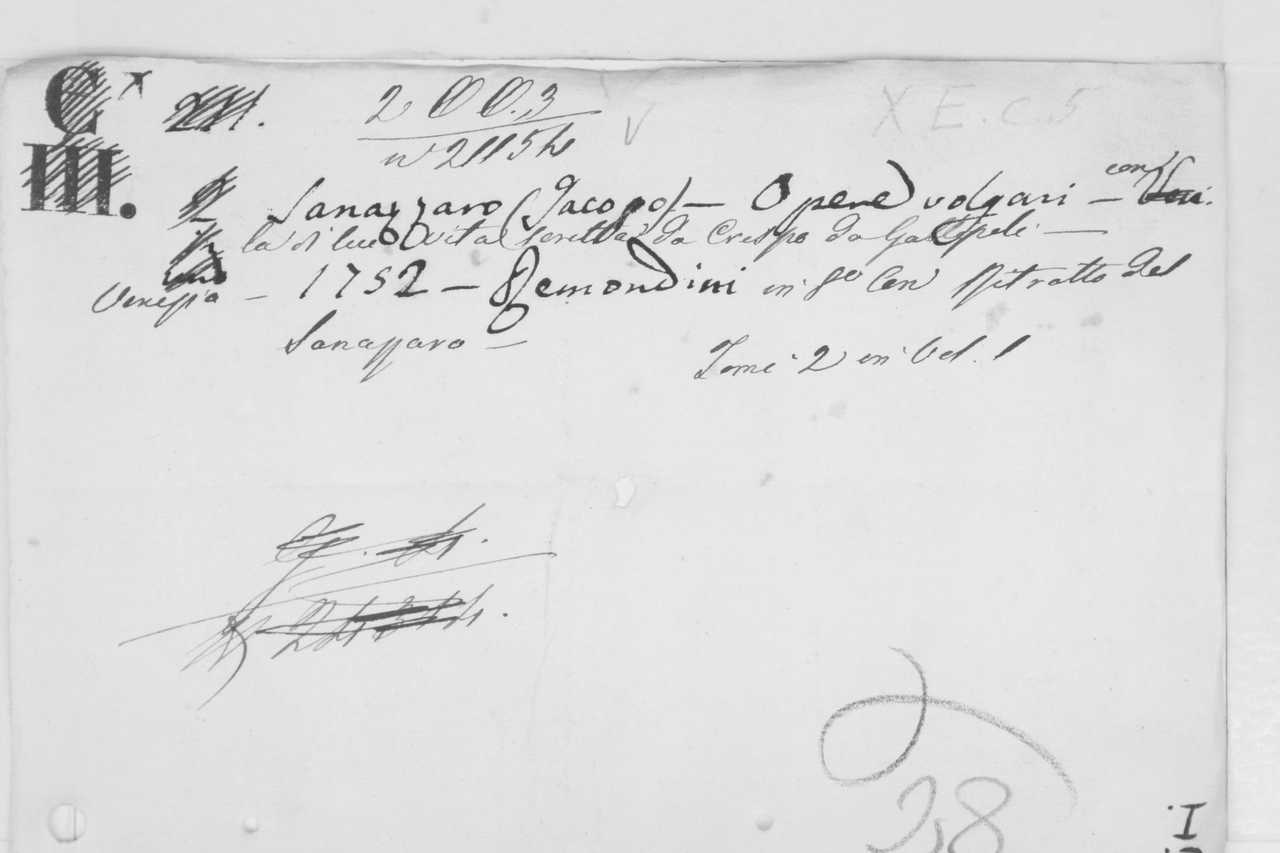 C
III.
2 00.3
n° 21154
X E. c. 5
Sanazzaro (Jacopo) — Opere volgari — con
la di lui vita scritta da Crespo da
Venezia — 1752 — Remondini in 8° Con Ritratto del
Sanazzaro —
Tomi 2 in Vol. 1
28